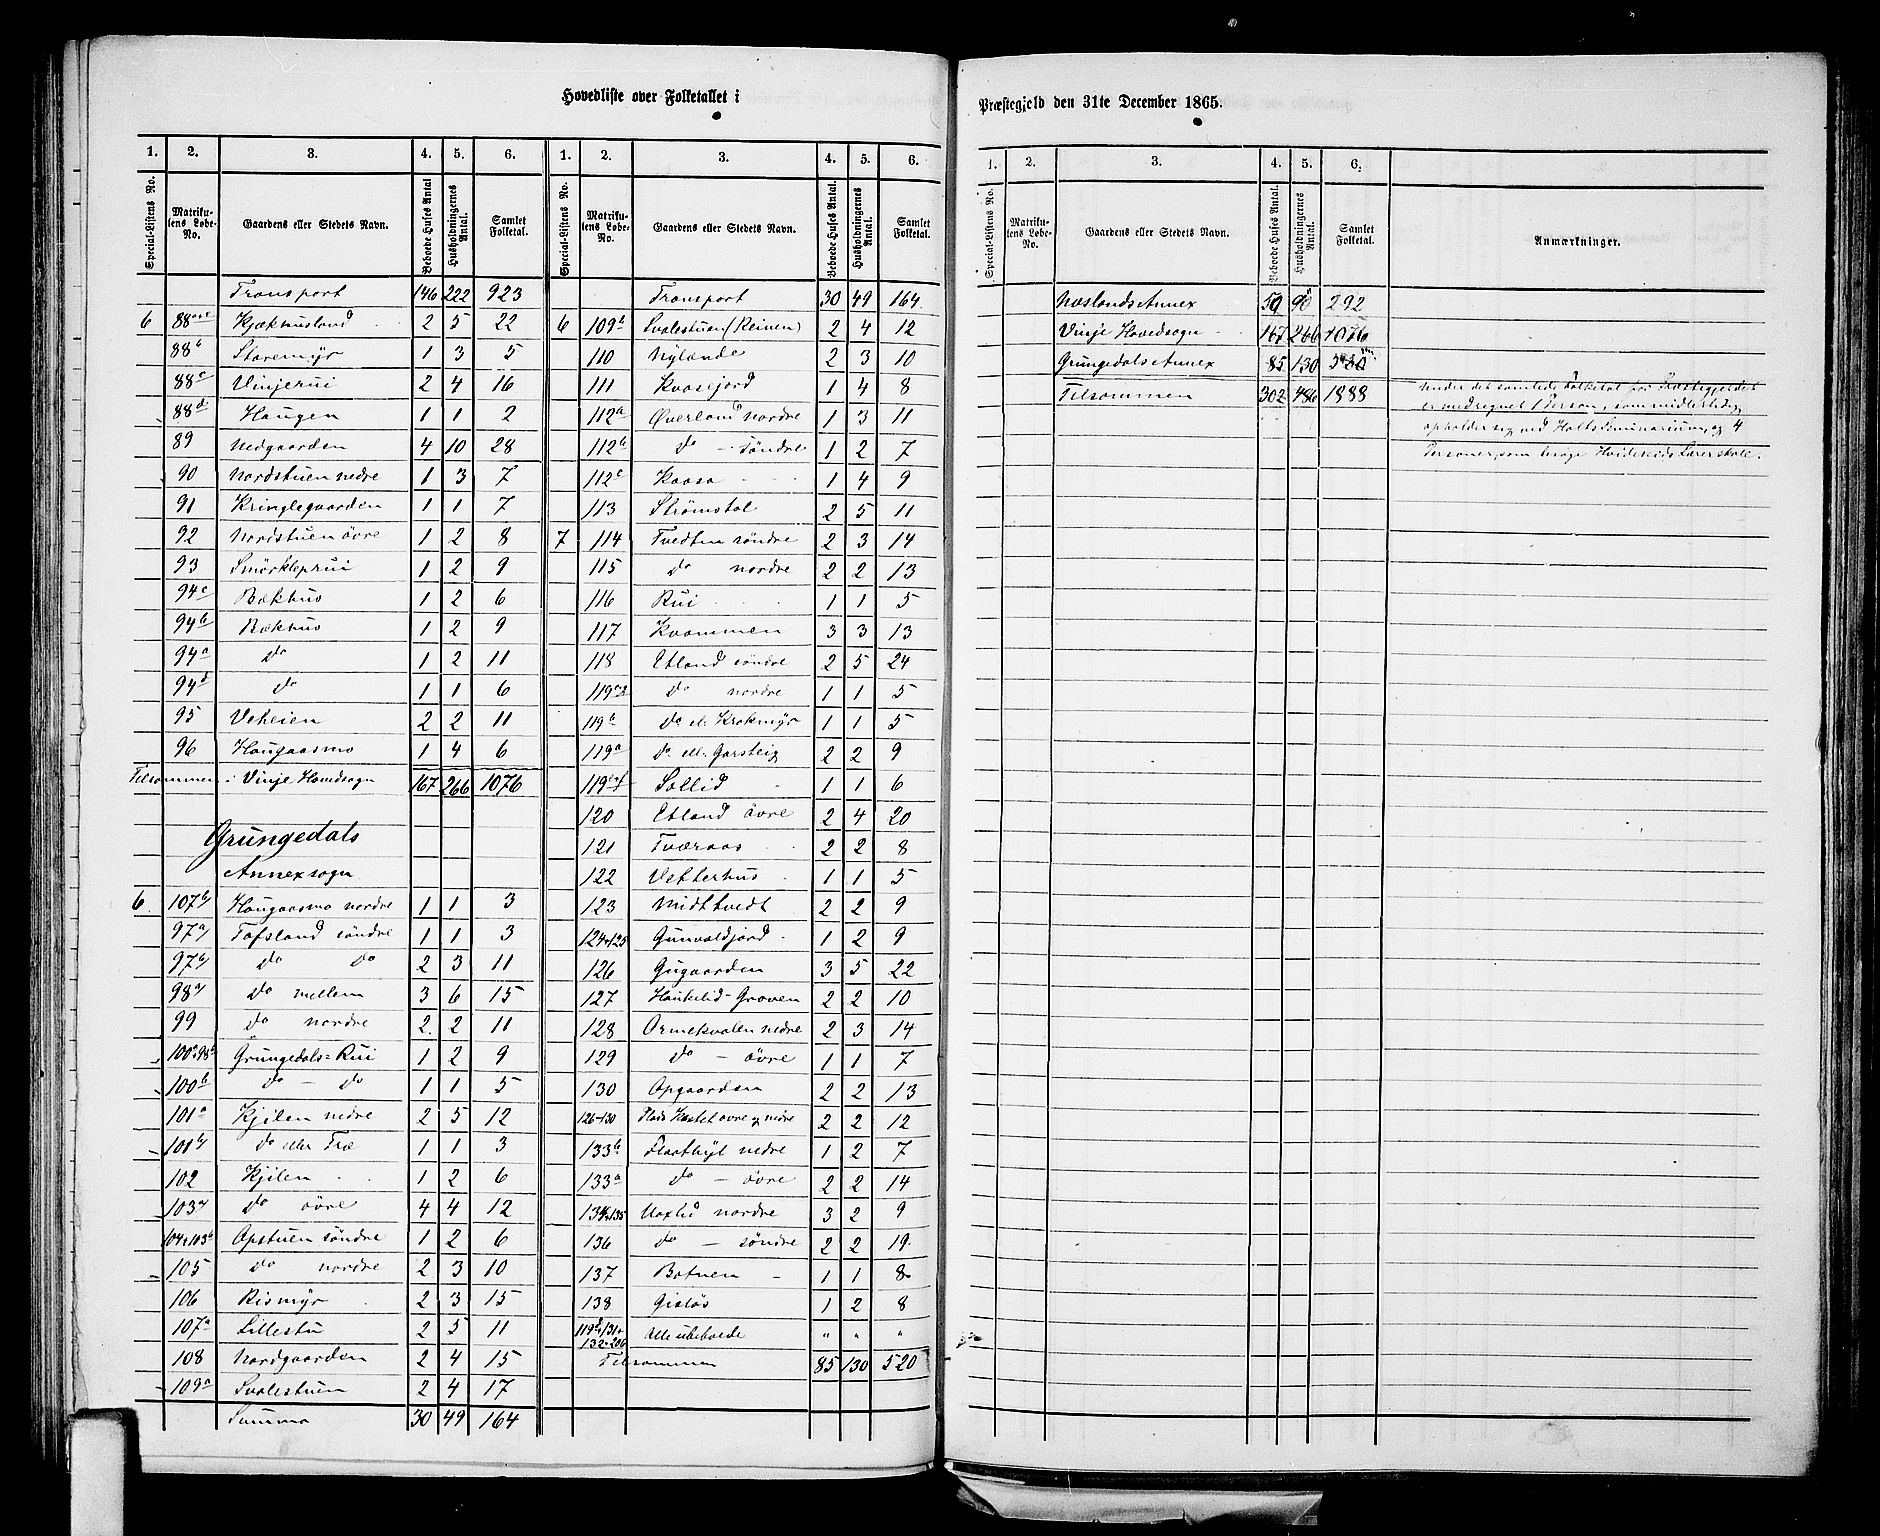 Hovedliste over Folketallet i
1. 2. 3. 4. 5. 6. 1. 2. 3. 4. 5. 6.
Special-Listens No. Matrikulens Løbe-No. Gaardens eller Stedets Navn. Beboede Huses Antal Husholdningernes Antal. Samlet Folketal. Special-Listens No. Matrikulens Løbe-No. Gaardens eller Stedets Navn. Beboede Huses Antal. Husholdningernes Antal. Samlet Folketal.
Transport 146 222 923
6 88 Kjækhusland 2 5 22
88b Staremyr 1 3 5
88c Vinjerui 2 4 16
88d Haugen 1 1 2
89 Nedgaarden 4 10 28
90 Nordstuen nedre 1 3 7
91 Kringlegaarden 1 1 7
92 Nordstuen övre 1 2 8
93 Smörkleprui 1 2 9
94c Bækhus 1 2 6
94b Bækhus 1 2 9
94a Do 1 2 11
94d Do 1 1 6
95 Veheien 2 2 11
96 Haugaasmo 1 4 6
Tilsammen i Vinje Hovedsogn 167 266 1076
Grungedals
Annexsogn
6 107b Haugaasmo nordre 1 1 3
97a Tofsland söndre 1 1 3
97b Do Do 2 3 11
98a Do mellem 3 6 15
99 Do nordre 2 2 11
100a98b Grungedals-Rui 1 2 9
100b Do - Do 1 1 5
101a Kjilen nedre 2 5 12
101b Do eller Træ 1 1 3
102 Kjilen 1 2 6
103a Do övre 4 4 12
104+103b Opstuen söndre 1 2 6
105 Do nordre 2 3 10
106 Rismyr 2 3 15
107a Lillestu 2 5 11
108 Nordgaarden 2 4 15
109a Svalestuen 2 4 17
Summa 30 49 164
Transport 30 49 164
6 109b Svalestuen (Reinen) 2 4 12
110 Nylande 2 3 10
111 Kvasejord 1 4 8
112a Øverland nordre 1 3 11
112b Do - söndre 1 2 7
112c Kaasa 1 4 9
113 Strömstøl 2 5 11
7 114 Tvedten söndre 2 3 14
115 Do nordre 2 2 13
116 Rui 1 1 5
117 Kvammen 3 3 13
118 Etland söndre 2 5 24
119 Do nordre 1 1 5
119b Do el. Krokmyr 1 1 5
119a Do ell. Garsteig 2 2 9
119 Sollid 1 1 6
120 Etland övre 2 4 20
121 Tværaas 2 2 8
122 Vetterhus 1 1 5
123 Midttvedt 2 2 9
124+125 Gunvaldjord 1 2 9
126 Gugaarden 3 5 22
127 Haukelid-Graven 2 2 10
128 Ormekvalen nedre 2 3 14
129 Do - övre 1 1 7
130 Opgaarden 2 2 13
126-130 Plads Hæstet övre og nedre 2 2 12
133b Flaathyl nedre 1 2 7
133a Do - övre 2 2 14
134+135 Vaxlid nordre 3 2 9
136 Do - söndre 2 2 19
137 Botnen 1 1 8
138 Gislös 1 2 8
119d+131+ 132+206 Alle ubeboede " " "
Tilsammen 85 130 520
Præstegjeld den 31te December 1865.
1. 2. 3. 4. 5. 6.
Special-Listens No. Matrikulens Løbe-No. Gaardens eller Stedets Navn. Beboede Huses Antal. Husholdningernes Antal. Samlet Folketal. Anmærkninger.
Næslands Annex 50 90 292
Vinje Hovedsogn 167 266 1076
Grungedals Annex 85 130 520
Tilsammen 302 486 1888
Under det samlede Folketal for Præstegjeldet
er medregnet 1 Person, som midlertidig
opholder sig ved Holts Seminarium, og 4
Personer, som besøge Hvideseids Lærerskole.